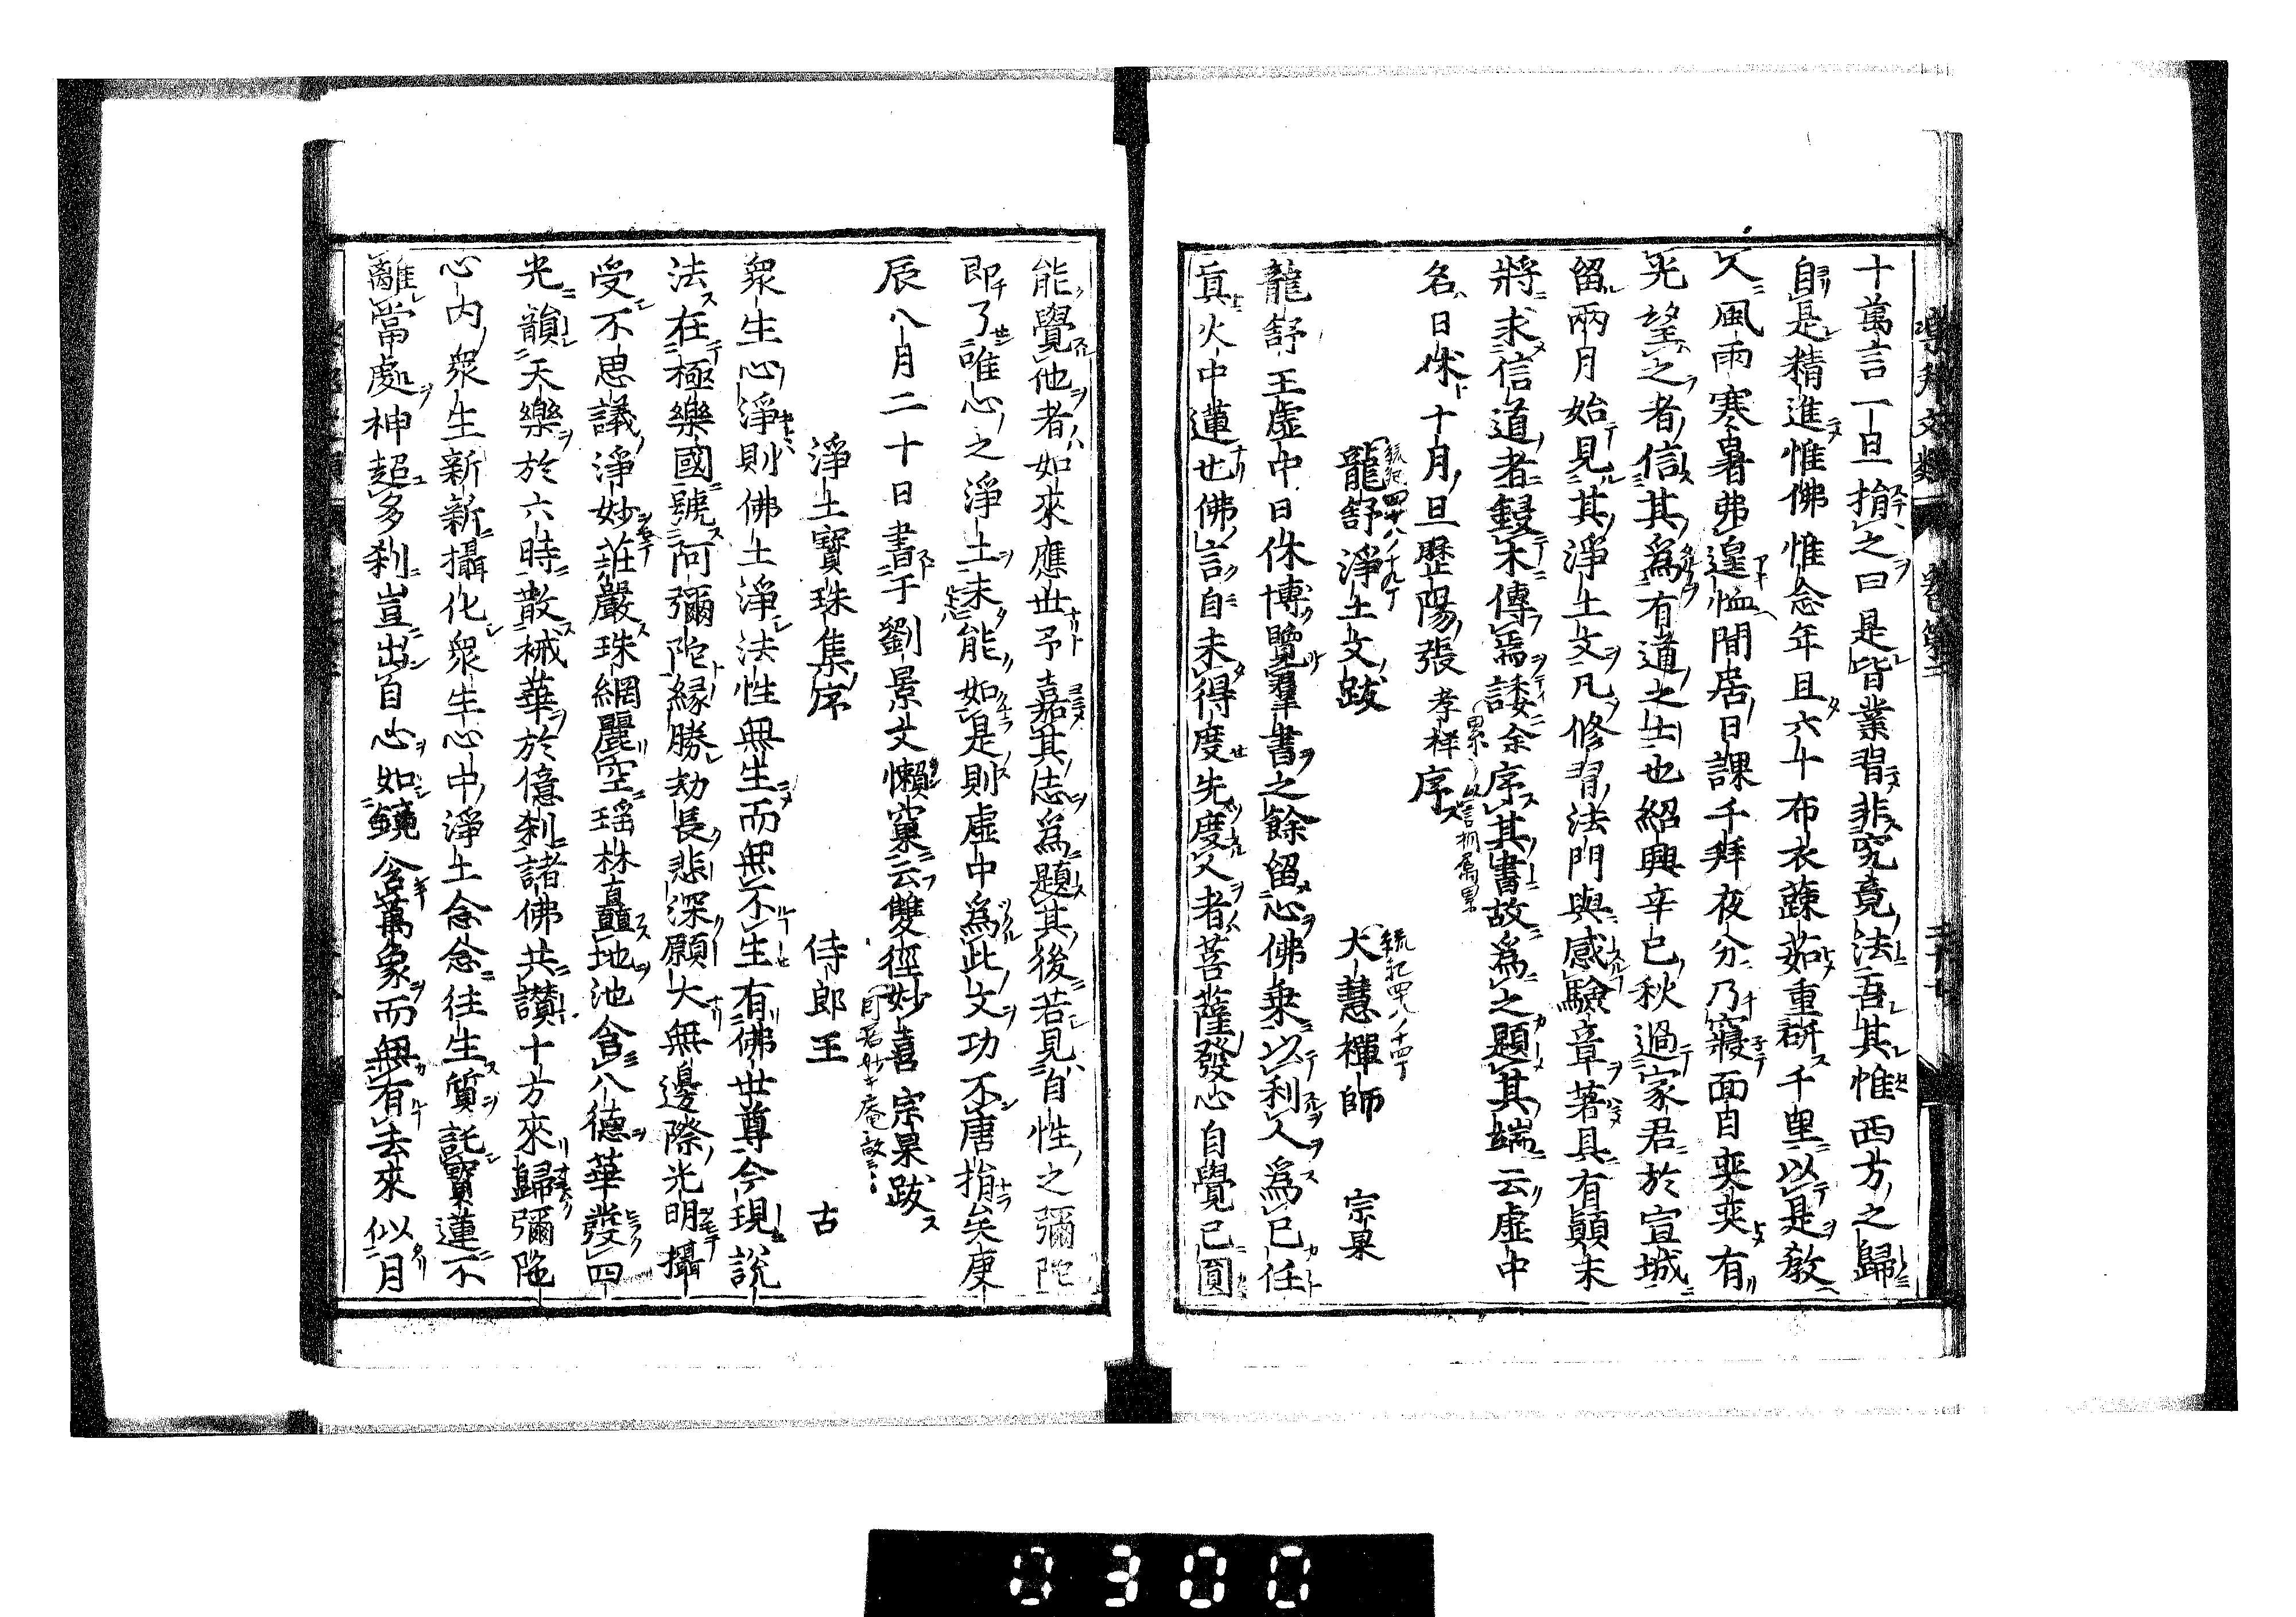 十萬言一旦捐之曰是皆業習非究竟法吾其惟西方之歸
自是精進惟佛惟念年且六十布衣蔬茹重硏千里以是教
人風雨寒暑弗遑恤閒居日課千拜夜分乃寢面目奕奕有
光望之者信其爲有道之士也紹興辛巳秋過家君於宣城
留兩月始見其淨土文凡修習法門與感驗章著具有顛末
將求信道者鋟木傳焉諉余序其書故爲之題其端云虛中
名日休十月旦歷陽張孝祥序
龍舒淨土文跋 大慧禪師 宗杲
龍舒王虛中日休博覽羣書之餘留心佛乘以利人爲己任
眞火中蓮也佛言自未得度先度人者菩薩發心自覺已圓
能覺他者如來應世予嘉其志爲題其後若見自性之彌陀
即了唯心之淨土未能如是則虛中爲此文功不唐捐矣庚
辰八月二十日書于劉景文懶窠云雙徑妙喜宗杲跋
淨土寶珠集序 侍郎王 古
衆生心淨則佛土淨法性無生而無不生有佛世尊今現說
法在極樂國號阿彌陀緣勝劫長悲深願大無邊際光明攝
受不思議淨妙莊嚴珠網麗空瑤林矗地池含八德華發四
光韻天樂於六時散裓華於億刹諸佛共讃十方來歸彌陀
心內衆生新新攝化衆生心中淨土念念往生質託寶蓮不
離當處神超多刹豈出自心如鏡含萬象而無有去來似月
0300